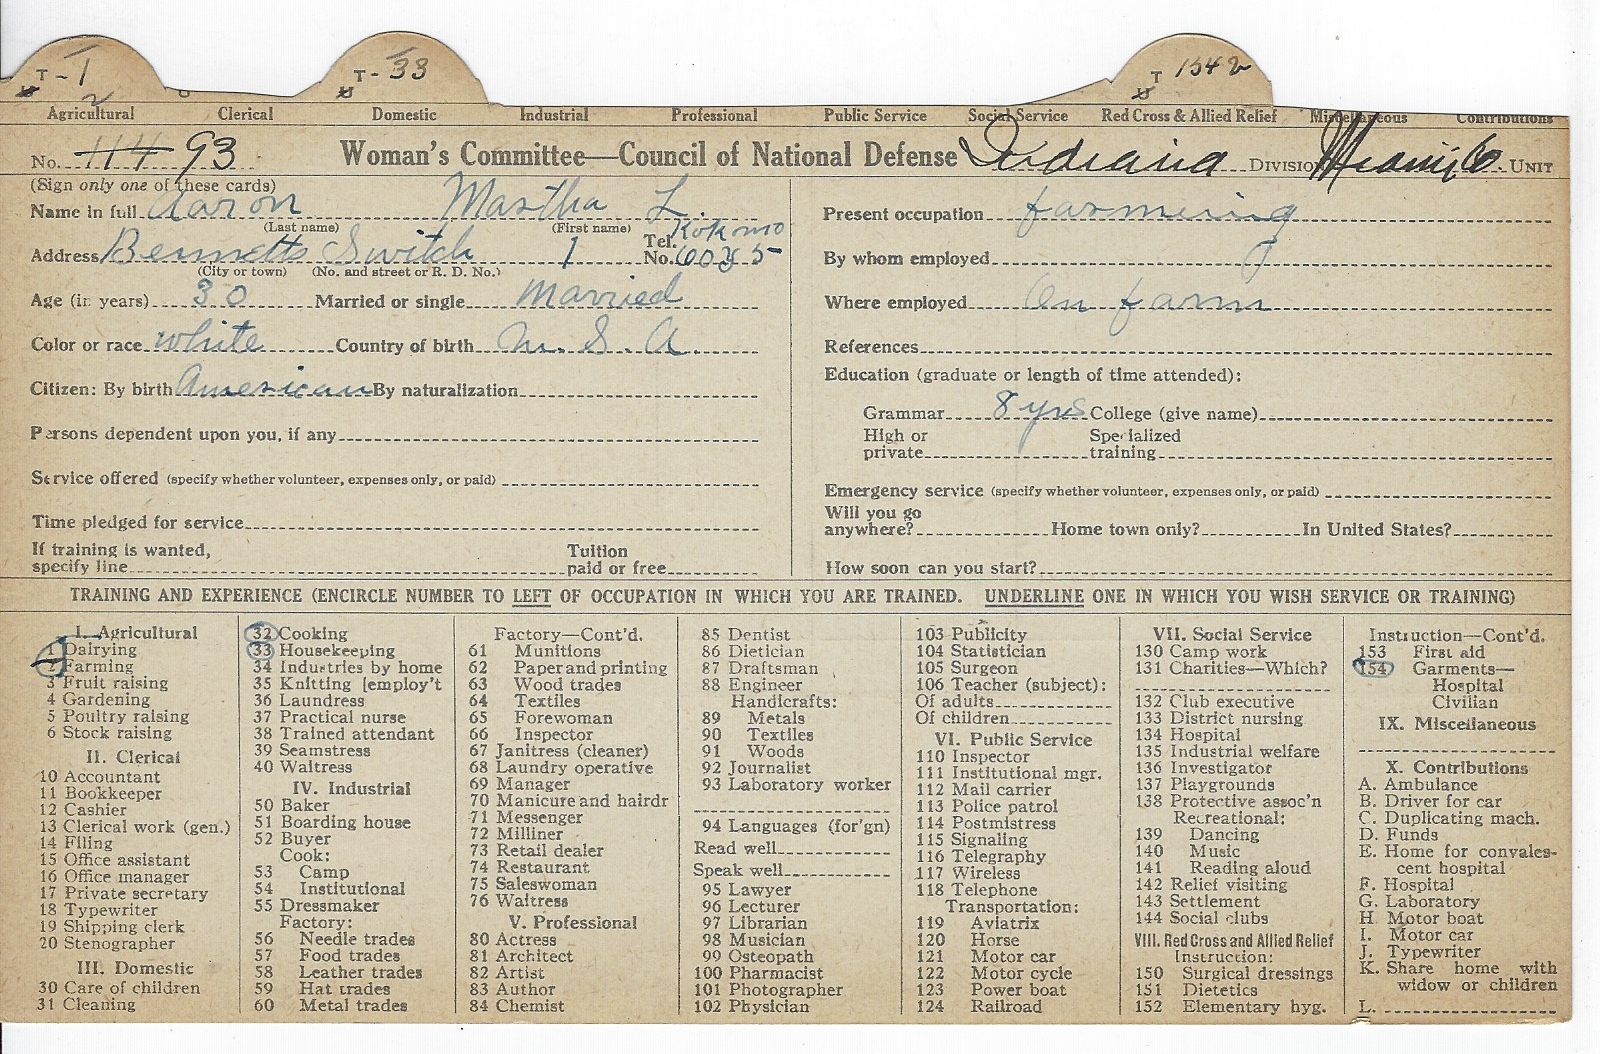 T - 1 T - 33 T 154
2
Agricultural Clerical Domestic Industrial Professional Public Service Social Service Red Cross & Allied Relief Miscellaneous Contributions
No. 114 93 Woman's Committee—Council of National Defense Indiana DIVISION Miami 6 UNIT
(Sign only one of these cards)
Name in full Aaron Martha L.
(Last name) (First name)
Address Bennetts Switch 1 Tel. No. Kokomo
(City or town) (No. and street or R. D. No.)
Age (in years) 30 Married or single Married
Color or race white Country of birth U. S. A.
Citizen: By birth American By naturalization
Persons dependent upon you, if any
Service offered (specify whether volunteer, expenses only, or paid)
Time pledged for service
If training is wanted, specify line Tuition paid or free
Present occupation farmering
By whom employed
Where employed On farm
References
Education (graduate or length of time attended):
Grammar 8 yrs College (give name)
High or private Specialized training
Emergency service (specify whether volunteer, expenses only, or paid)
Will you go anywhere? Home town only? In United States?
How soon can you start?
TRAINING AND EXPERIENCE (ENCIRCLE NUMBER TO LEFT OF OCCUPATION IN WHICH YOU ARE TRAINED. UNDERLINE ONE IN WHICH YOU WISH SERVICE OR TRAINING)
I. Agricultural
1 Dairying
2 Farming
3 Fruit raising
4 Gardening
5 Poultry raising
6 Stock raising
II. Clerical
10 Accountant
11 Bookkeeper
12 Cashier
13 Clerical work (gen.)
14 Filing
15 Office assistant
16 Office manager
17 Private secretary
18 Typewriter
19 Shipping clerk
20 Stenographer
III. Domestic
30 Care of children
31 Cleaning
32 Cooking
33 Housekeeping
34 Industries by home
35 Knitting [employ't
36 Laundress
37 Practical nurse
38 Trained attendant
39 Seamstress
40 Waitress
IV. Industrial
50 Baker
51 Boarding house
52 Buyer
Cook:
53 Camp
54 Institutional
55 Dressmaker
Factory:
56 Needle trades
57 Food trades
58 Leather trades
59 Hat trades
60 Metal trades
Factory—Cont'd.
61 Munitions
62 Paper and printing
63 Wood trades
64 Textiles
65 Forewoman
66 Inspector
67 Janitress (cleaner)
68 Laundry operative
69 Manager
70 Manicure and hairdr
71 Messenger
72 Milliner
73 Retail dealer
74 Restaurant
75 Saleswoman
76 Waitress
V. Professional
80 Actress
81 Architect
82 Artist
83 Author
84 Chemist
85 Dentist
86 Dietician
87 Draftsman
88 Engineer
Handicrafts:
89 Metals
90 Textiles
91 Woods
92 Journalist
93 Laboratory worker
94 Languages (for'gn)
Read well
Speak well
95 Lawyer
96 Lecturer
97 Librarian
98 Musician
99 Osteopath
100 Pharmacist
101 Photographer
102 Physician
103 Publicity
104 Statistician
105 Surgeon
106 Teacher (subject):
Of adults
Of children
VI. Public Service
110 Inspector
111 Institutional mgr.
112 Mail carrier
113 Police patrol
114 Postmistress
115 Signaling
116 Telegraphy
117 Wireless
118 Telephone
Transportation:
119 Aviatrix
120 Horse
121 Motor car
122 Motor cycle
123 Power boat
124 Railroad
VII. Social Service
130 Camp work
131 Charities—Which?
132 Club executive
133 District nursing
134 Hospital
135 Industrial welfare
136 Investigator
137 Playgrounds
138 Protective assoc'n
Recreational:
139 Dancing
140 Music
141 Reading aloud
142 Relief visiting
143 Settlement
144 Social clubs
VIII. Red Cross and Allied Relief
Instruction:
150 Surgical dressings
151 Dietetics
152 Elementary hyg.
Instruction—Cont'd.
153 First aid
154 Garments—
Hospital
Civilian
IX. Miscellaneous
X. Contributions
A. Ambulance
B. Driver for car
C. Duplicating mach.
D. Funds
E. Home for convales-
cent hospital
F. Hospital
G. Laboratory
H. Motor boat
I. Motor car
J. Typewriter
K. Share home with
widow or children
L.